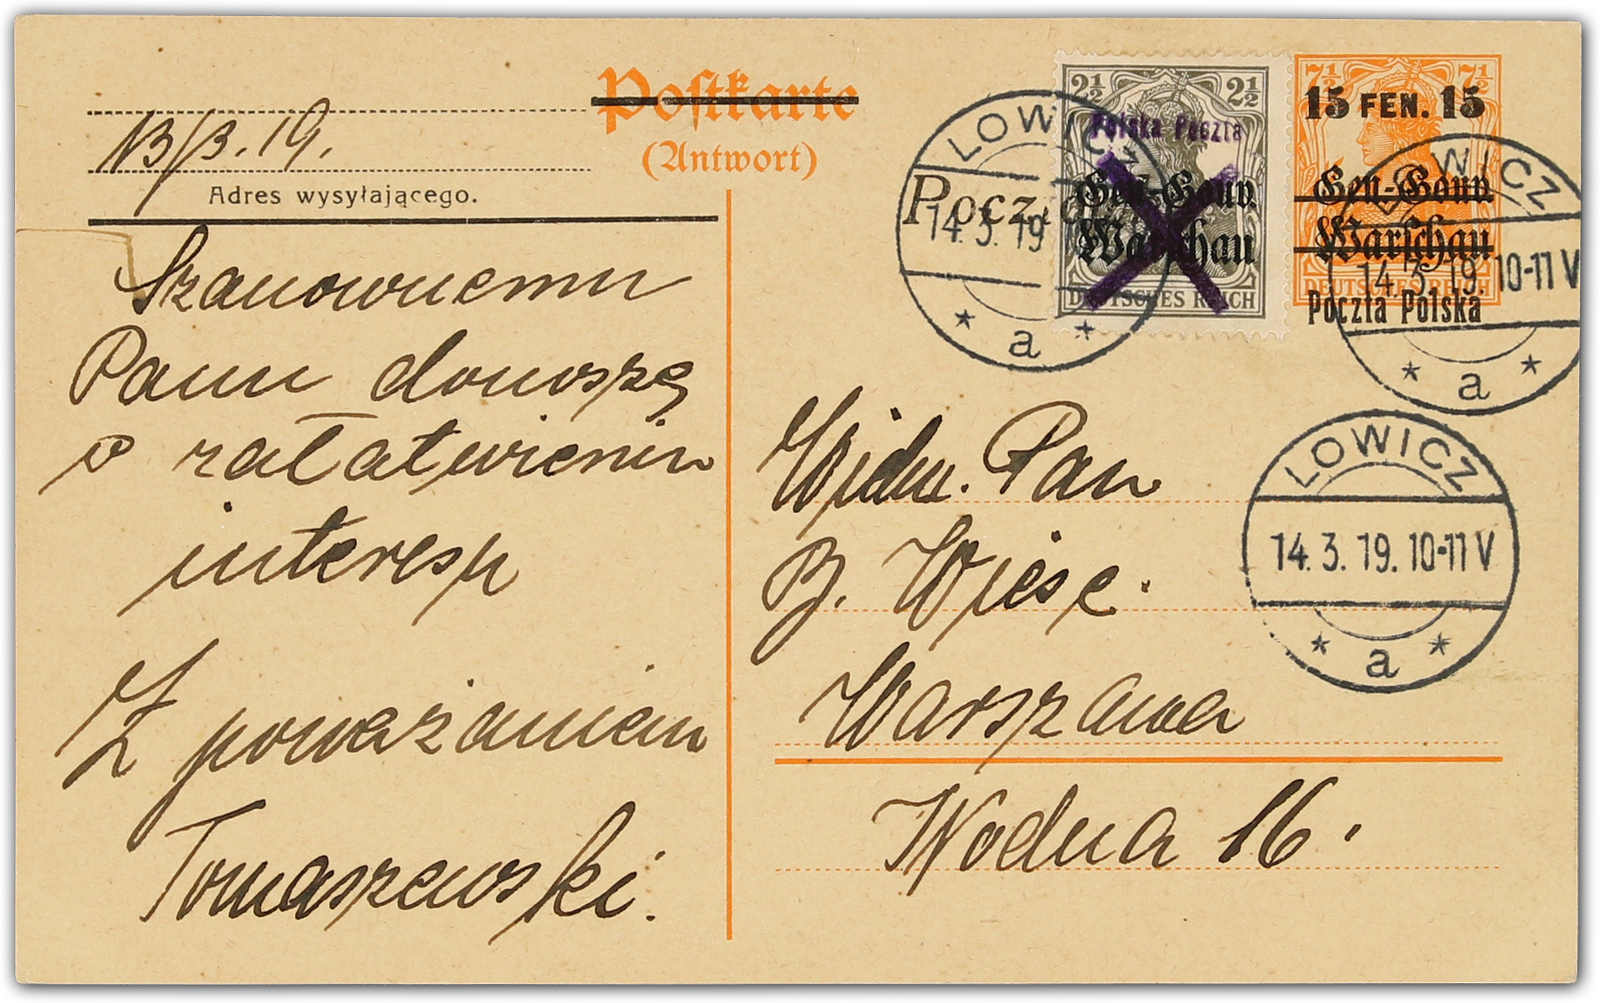 Postkarte
(Antwort)
13/3. 19.
Adres wysyłającego.
Szanownemu
Panu donoszę
o załatwieniu
interesu
Z poważaniem
Tomaszewski.
2½ 2½
Polska Poczta
Gen.-Gouv.
Warschau
DEUTSCHES REICH
7½ 7½
15 FEN. 15
Gen.-Gouv.
Warschau
DEUTSCHES REICH
Poczta Polska
LOWICZ
14. 3. 19
* a *
LOWICZ
14. 3. 19. 10-11 V
* a *
LOWICZ
14. 3. 19. 10-11 V
* a *
Pan
B. Wiese.
Warszawa
Wodna 16.